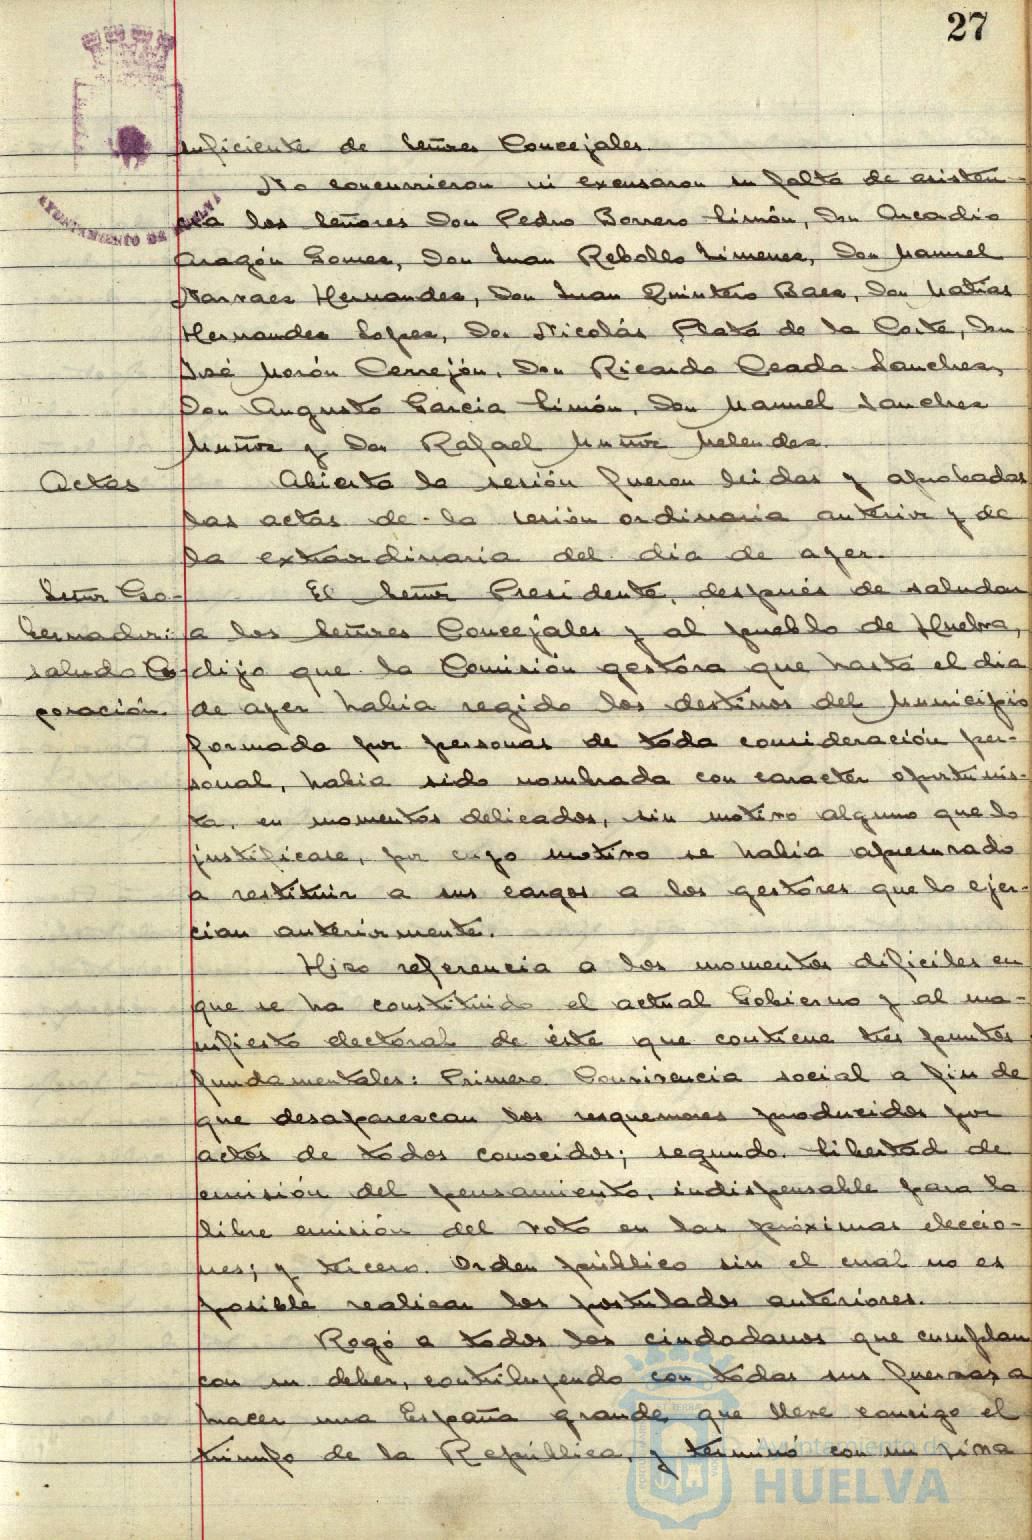 27
suficiente de Señores Concejales.
No concurrieron ni excusaron su falta de asisten-
cia los Señores Don Pedro Borrero Limón, Don Arcadio
Aragón Gomez, Don Juan Rebollo Jimenez, Don Manuel
Narvaez Hernandez, Don Juan Quintero Baez, Don Matias
Hernandez Lopez, Don Nicolás Plata de la Corte, Don
José Morón Cerrejón, Don Ricardo Ceada Sanchez,
Don Augusto Garcia Limón, Don Manuel Sanchez
Muñoz y Don Rafael Muñoz Melendez.
Actas
Abierta la sesión fueron leidas y aprobadas
las actas de la sesión ordinaria anterior y de
la extraordinaria del dia de ayer.
Señor Go-
bernador:
saludo Co-
poración.
El Señor Presidente, después de saludar
a los Señores Concejales y al pueblo de Huelva,
dijo que la Comisión gestora que hasta el dia
de ayer habia regido los destinos del Municipio
formada por personas de toda consideración per-
sonal, habia sido nombrada con caracter oportunis-
ta, en momentos delicados, sin motivo alguno que lo
justificase, por cuyo motivo se habia apresurado
a restituir a sus cargos a los gestores que lo ejer-
cian anteriormente.
Hizo referencia a los momentos dificiles en
que se ha constituido el actual Gobierno y al ma-
nifiesto electoral de éste que contiene tres puntos
fundamentales: Primero. Convivencia social a fin de
que desaparezcan los resquemores producidos por
actos de todos conocidos; segundo. Libertad de
emisión del pensamiento, indispensable para la
libre emisión del voto en las próximas eleccio-
nes; y tercero. Orden público sin el cual no es
posible realizar los postulados anteriores.
Rogó a todos los ciudadanos que cumplan
con su deber, contribuyendo con todas sus fuerzas a
hacer una España grande, que lleve consigo el
triunfo de la República, y terminó con un viva
AYUNTAMIENTO DE HUELVA
Ayuntamiento de
HUELVA